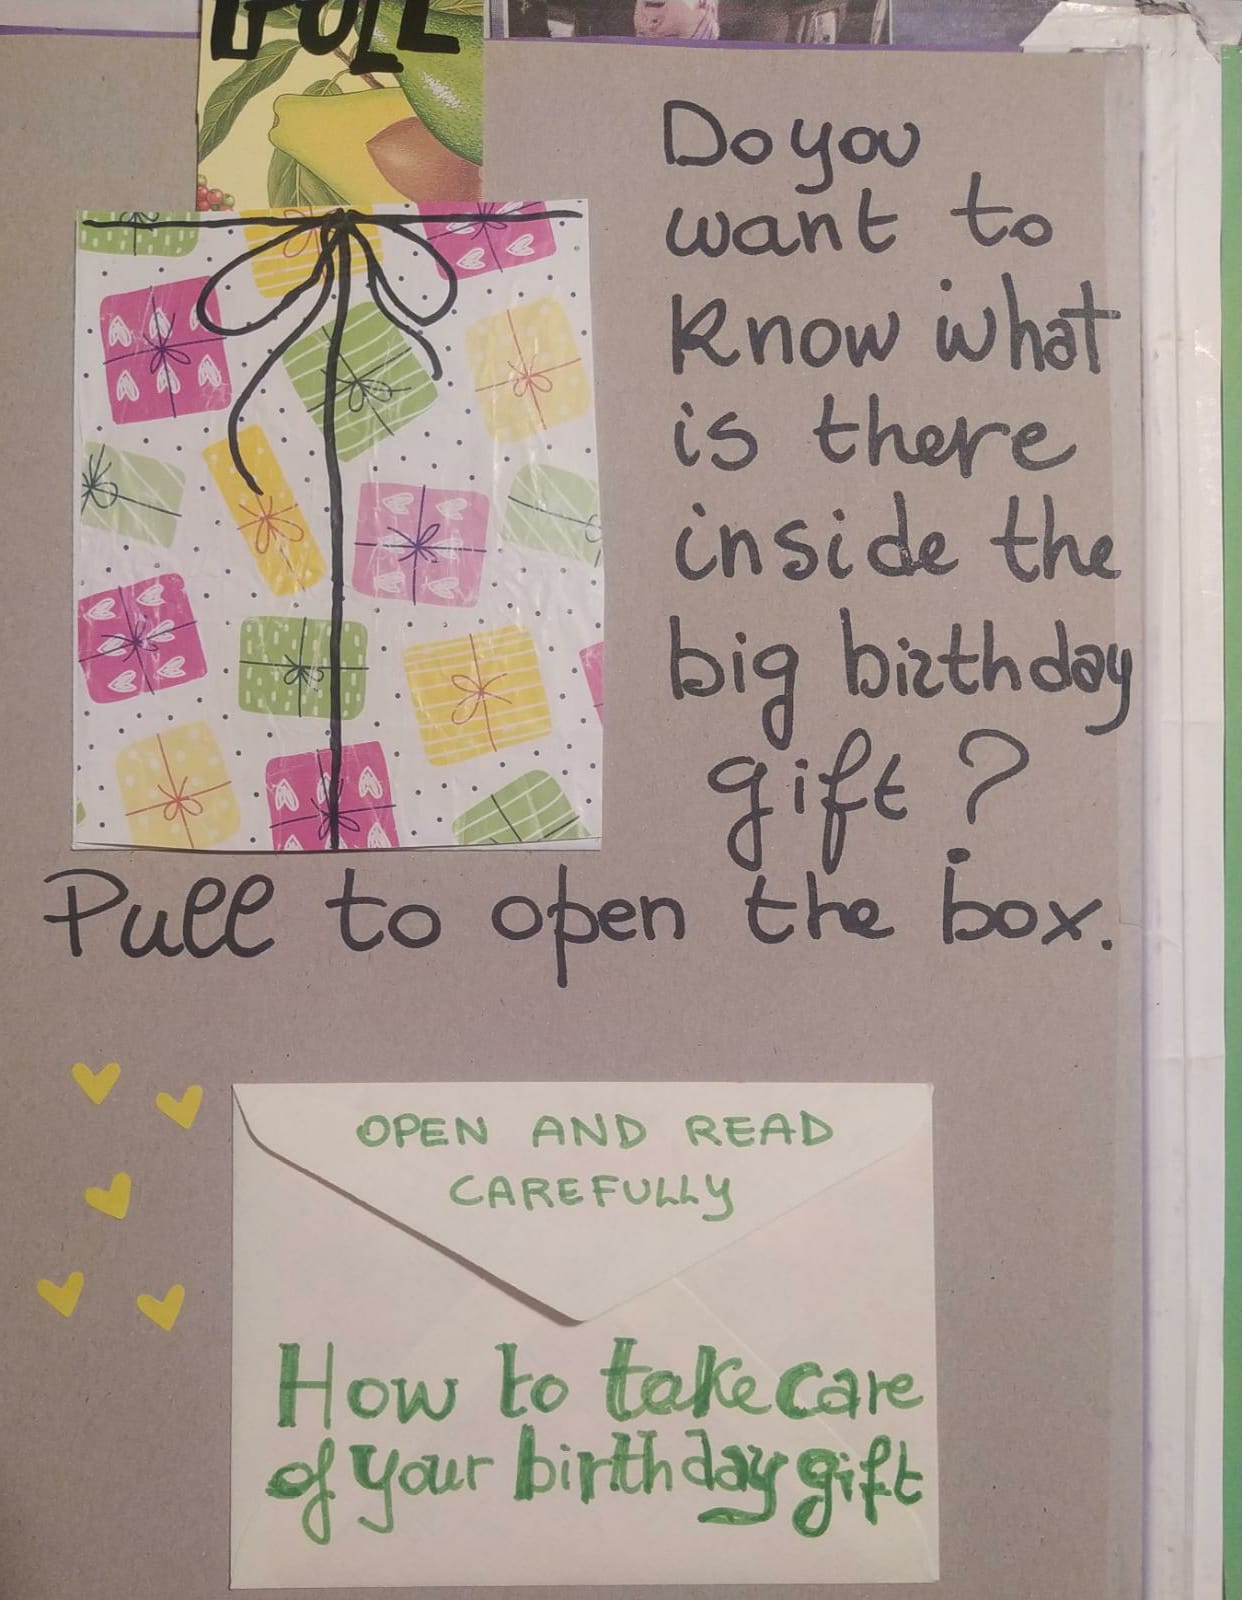 PULL
Do you
want to
know what
is there
inside the
big birthday
gift?
Pull to open the box.
OPEN AND READ
CAREFULLY
How to take care
of your birthday gift